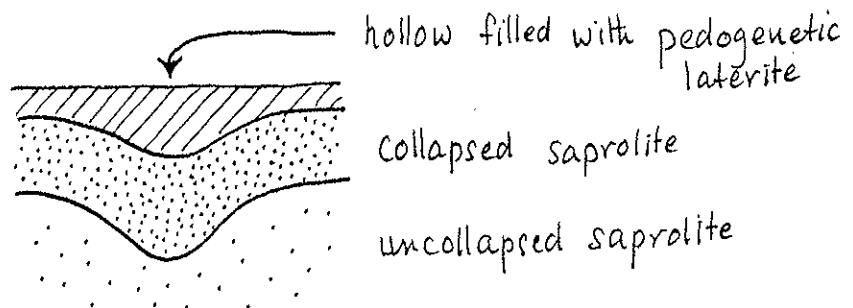 hollow filled with pedogenetic
laterite
collapsed saprolite
uncollapsed saprolite